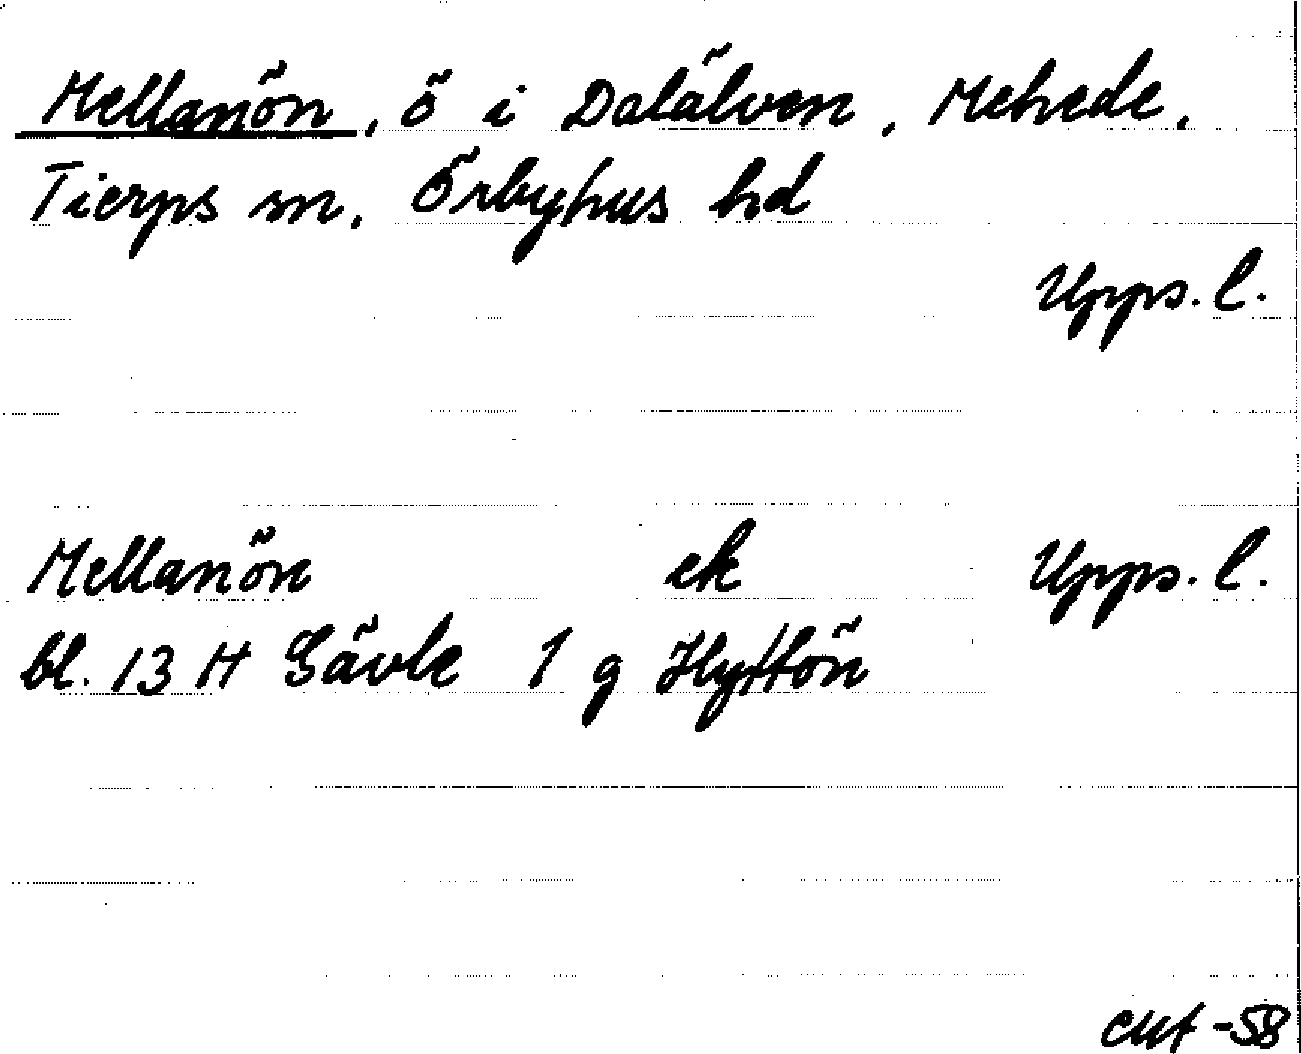 Mellanön, ö i Dalälven, Mehede,
Tierps sn, Örbyhus hd
Upps. l.
Mellanön ek Upps. l.
bl. 13 H Gävle 1 g Hyttön
CMf -58